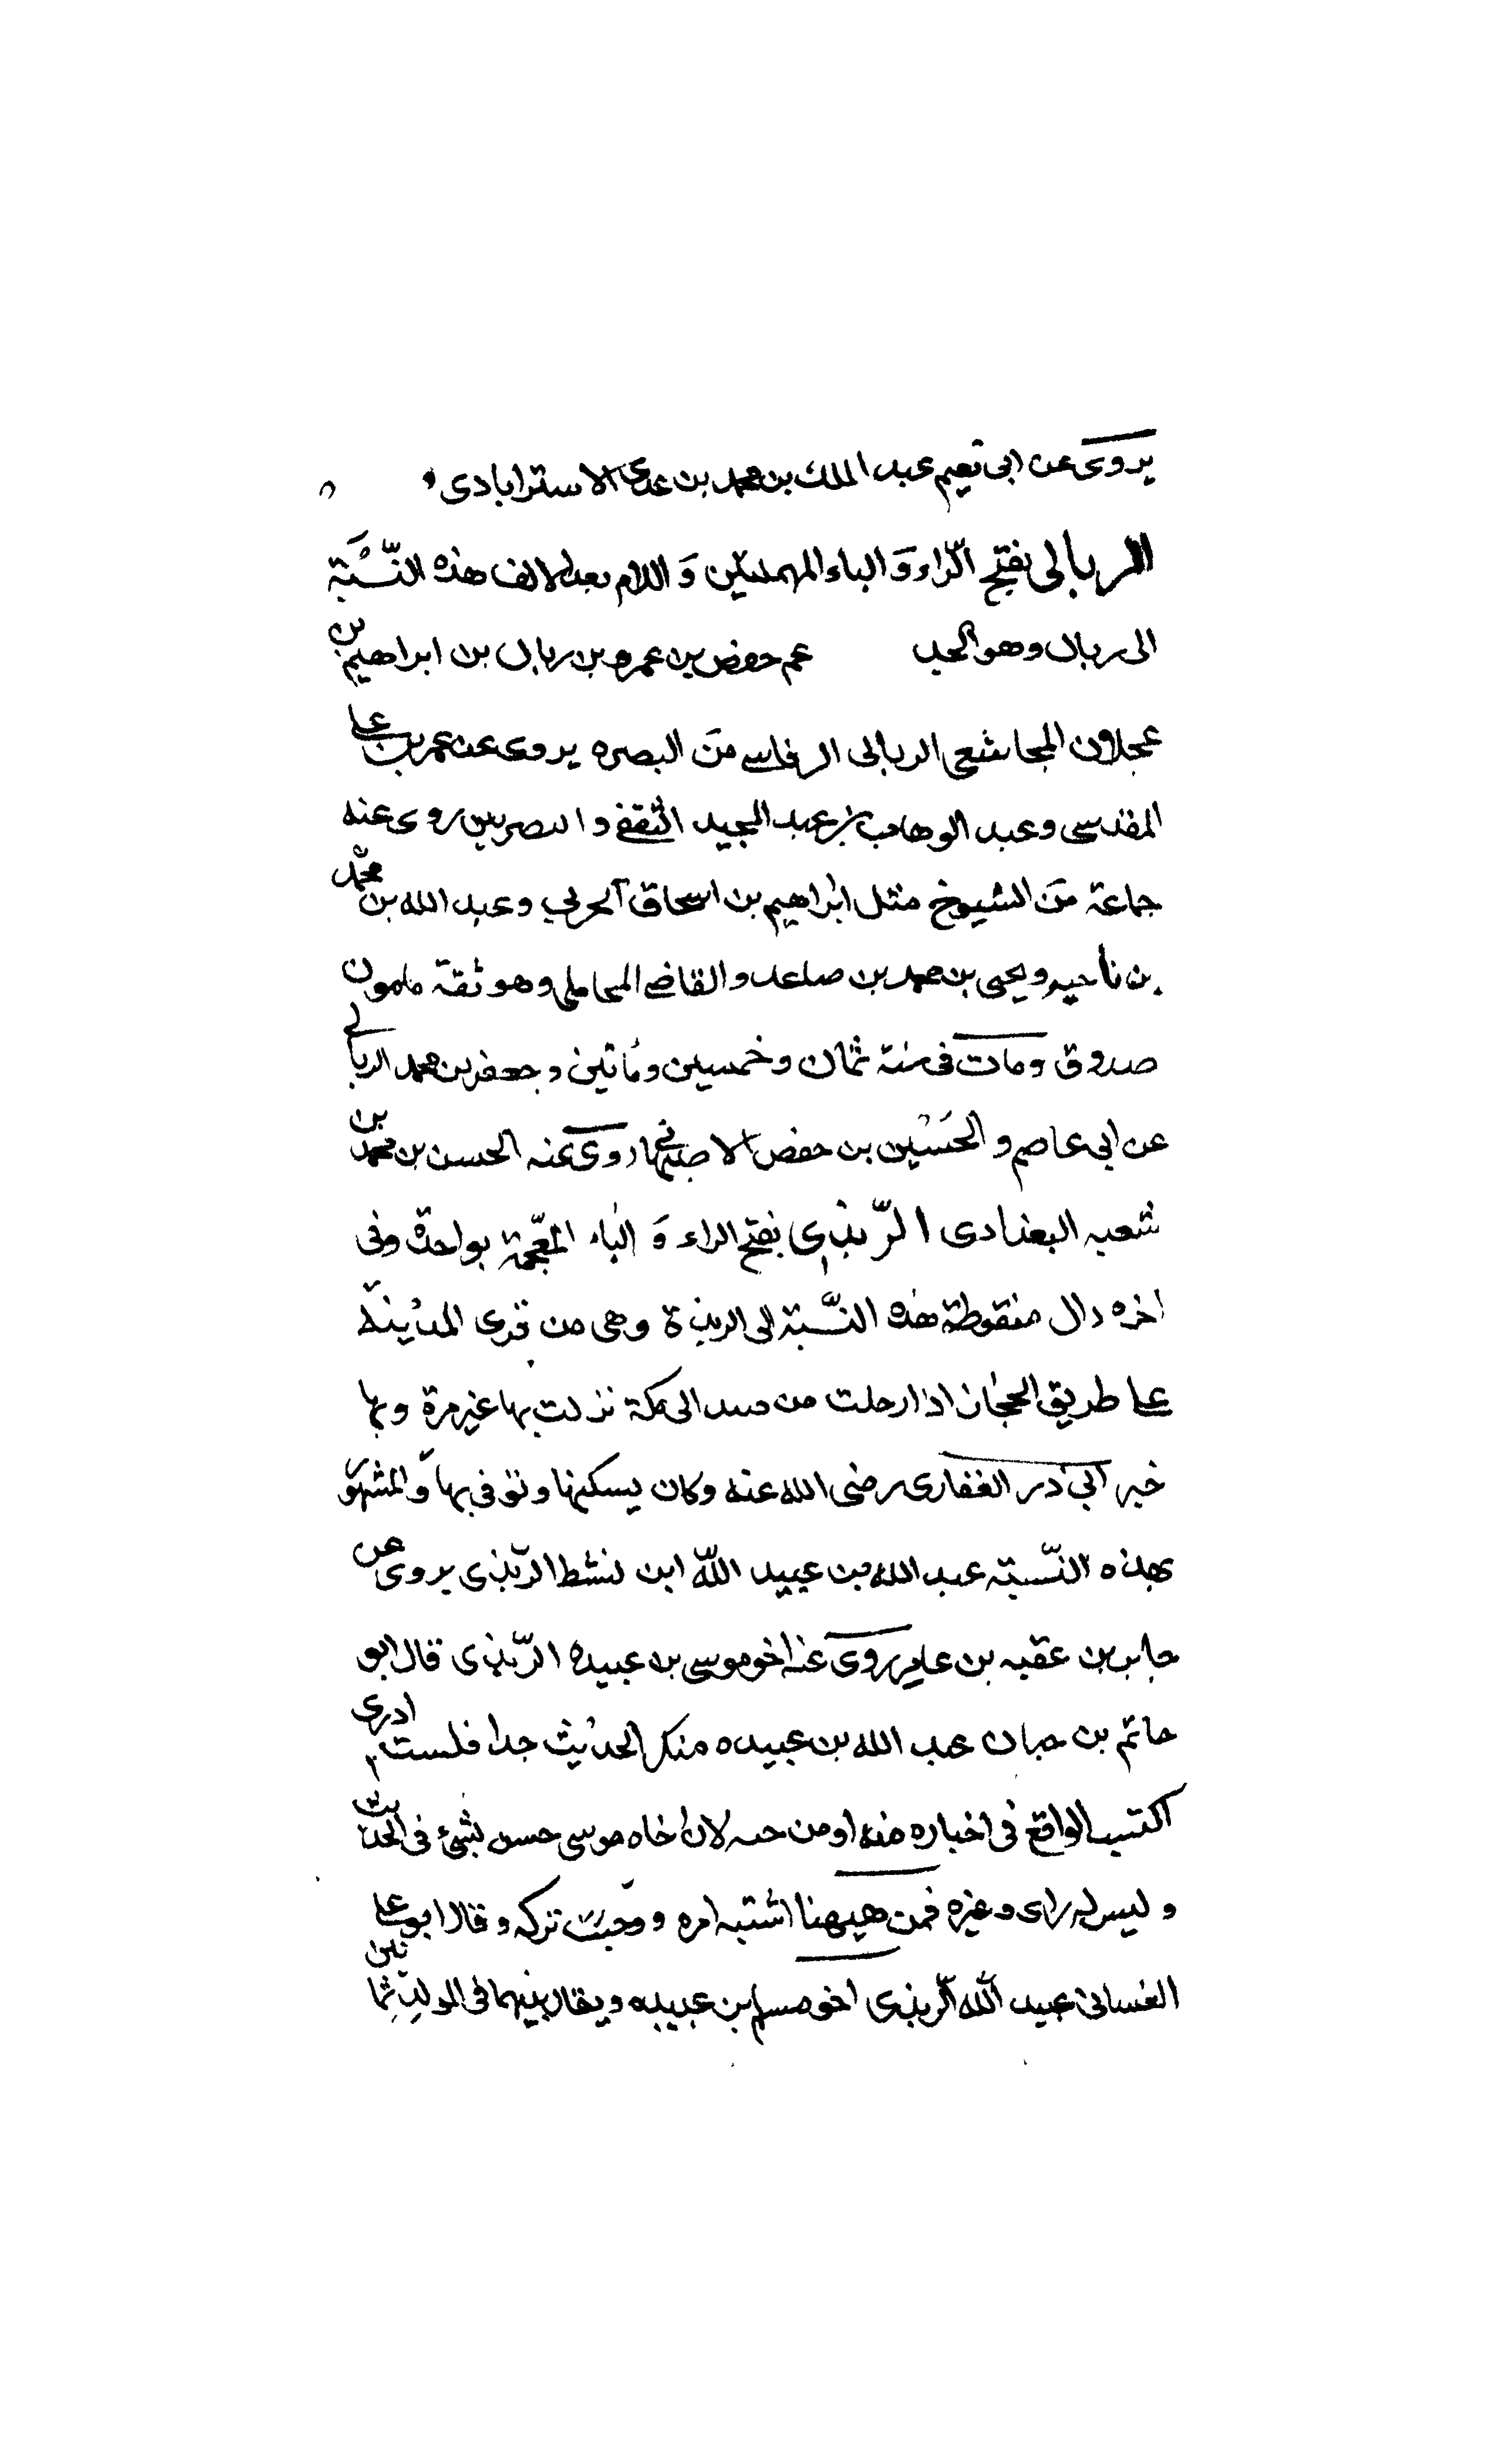 يروى عن ابى نعيم عبد الملك بن محمد بن عدى الاسترابادى
الربالى بفتح الرّاء وَ الباء المهملتين وَ اللام بعد الالف هذه النّسْبَة
الى ربال وهو الجد عم حفص بن عمرو بن ربال بن ابراهيم بن
عجلان المجاشعى الربالى الرقاسے منَ البصره يروى عن عمر بن على
المقدسى وعبد الوهاب بن عبد المجيد الثقفے والبصريين روى عنه
جماعة منَ الشيوخ مثل ابراهيم بن اسحاق الحربي وعبد الله بن محمّد
بن ناحيه ويحيى بن محمد بن صاعد والقاضے المحاملى وهو ثقة مامون
صدوق ومات فى سنة ثمان وخمسين ومأتين وجعفر بن محمد الربالے
عن ابى عاصم والحسَين بن حفص الاصبهانے روى عنه الحسن بن محمد بن
شعبه البغدادى الرّبذى بفتح الراء وَ الباء المعّجمة بواحدة وفى
اخره دال منقوطة هذه النّسبة الى الربذة وهى من قرى المدينة
على طريق الحجاز اذا رحلت من الى مكة نزلت بها غير مرة وبها
خبر ابى ذر الغفارى رضى الله عنه وكان يسكنها وتوفى بها وَالمشهوَر
بهذه النّسبة عبد الله بن عبيد اللّه ابن نشط الرّبذى يروى عن
جابر بن عقبه بن عامر روى عنه اخو موسى بن عبيده الرّبذى قال ابو
حاتم بن حبان عبد الله بن عبيده منكر الحديث جدا فلست ادرى
اكتسب الواقع فى اخباره منه او من لان اخاه موسى حسن بشئ فى الحديث
وليس له راى وغيره فمن هيهنا اشتبه امره ووجبَت تركه وقال ابو على
الغسانى عبيد اللّه الرّبذى اخو مسلم بن عبيده ويقال بينهما فى المولد ثمانين